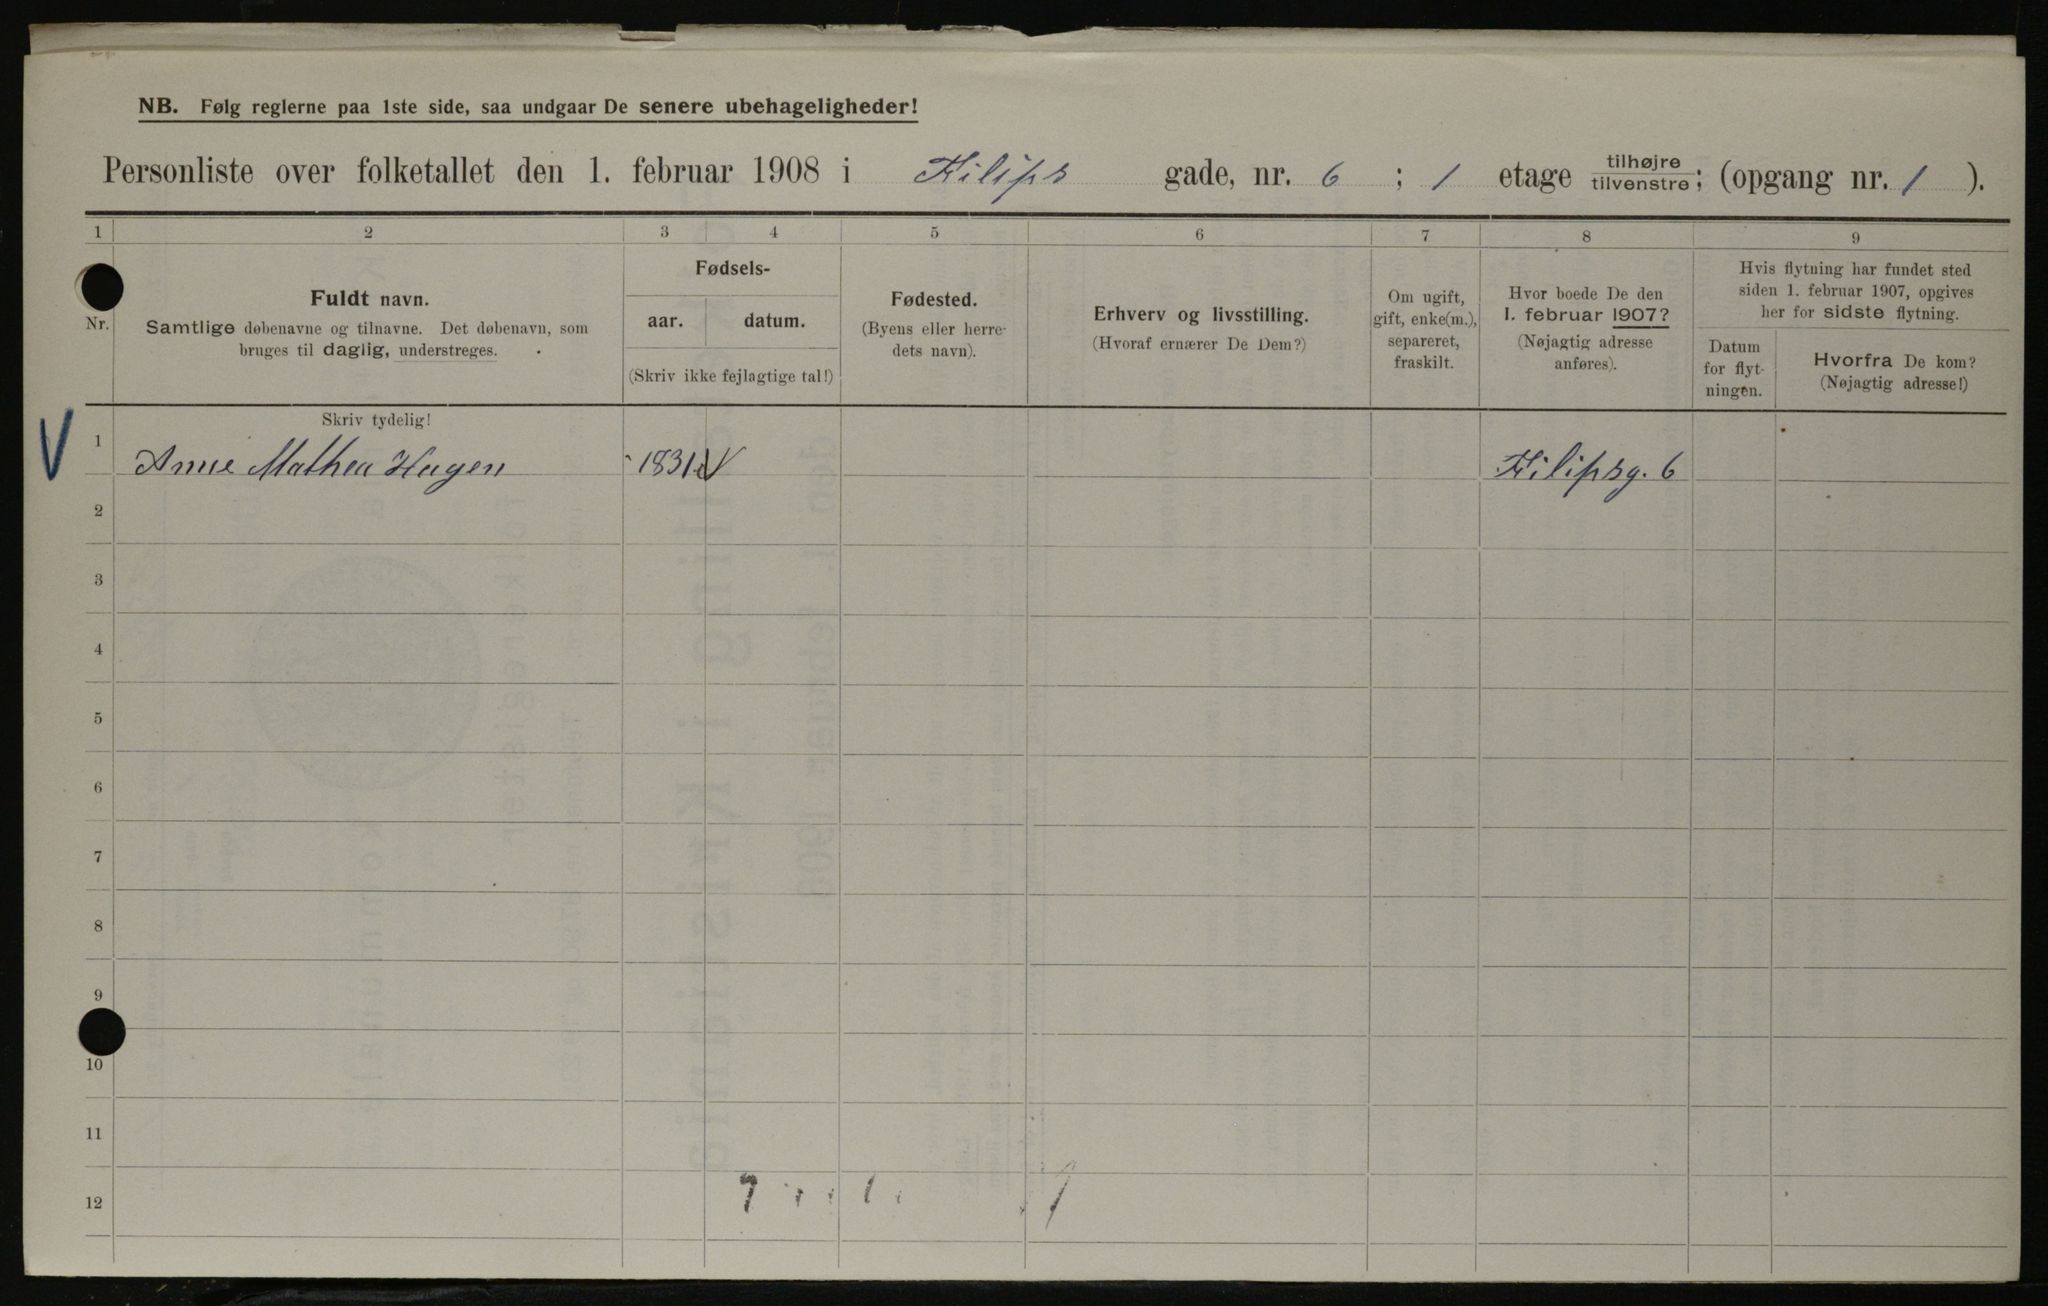 NB. Følg reglerne paa 1ste side, saa undgaar De senere ubehageligheder!
Personliste over folketallet den 1. februar 1908 i Filips gade, nr. 6 ; 1 etage tilhøjre tilvenstre; (opgang nr. 1 ).
1 2 3 4 5 6 7 8 9
Nr.
Fuldt navn.
Samtlige døbenavne og tilnavne. Det døbenavn, som
bruges til daglig, understreges.
Fødsels-
aar. datum.
(Skriv ikke fejlagtige tal!)
Fødested.
(Byens eller herre-
dets navn).
Erhverv og livsstilling.
(Hvoraf ernærer De Dem?)
Om ugift,
gift, enke(m.),
separeret,
fraskilt.
Hvor boede De den
1. februar 1907?
(Nøjagtig adresse
anføres).
Hvis flytning har fundet sted
siden 1. februar 1907, opgives
her for sidste flytning.
Datum
for flyt-
ningen.
Hvorfra De kom?
(Nøjagtig adresse!)
Skriv tydelig!
1 Anne Mathea Hagen 1831 Filipsg. 6
2
3
4
5
6
7
8
9
10
11
12